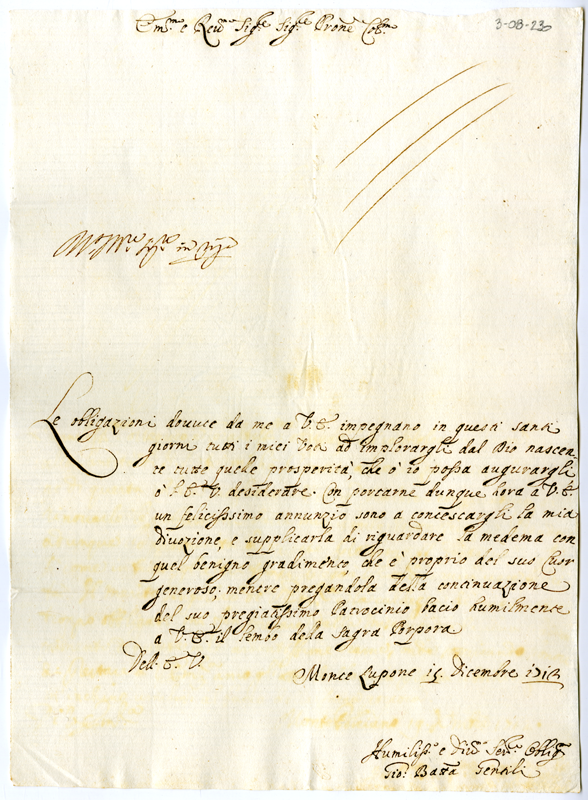 Em.mo e Rev.mo Sig.re Sig.re Prone Col.mo
3-08-230
Le obbligazioni dovute da me a V.E. impegnano in questi santi
giorni tutti i miei Voti ad implorargli dal Dio nascen-
te tutte quelle prosperità, che ò io possa augurargli
ò l'E.V. desiderare. Con portarne dunque hora a V.E.
un felicissimo annunzio sono a contestargli la mia
divozione, e supplicarla di riguardare la medema con
quel benigno gradimento, che è proprio del suo Cuor
generoso; mentre pregandola della continuazione
del suo pregiatissimo Patrocinio bacio humilmente
a V.E. il lembo della Sagra Porpora
Dell'E.V.
Monte Lupone 15. Dicembre
Humiliss.o e Div.mo Ser.re Oblig.o
Gio: Batta Gentili